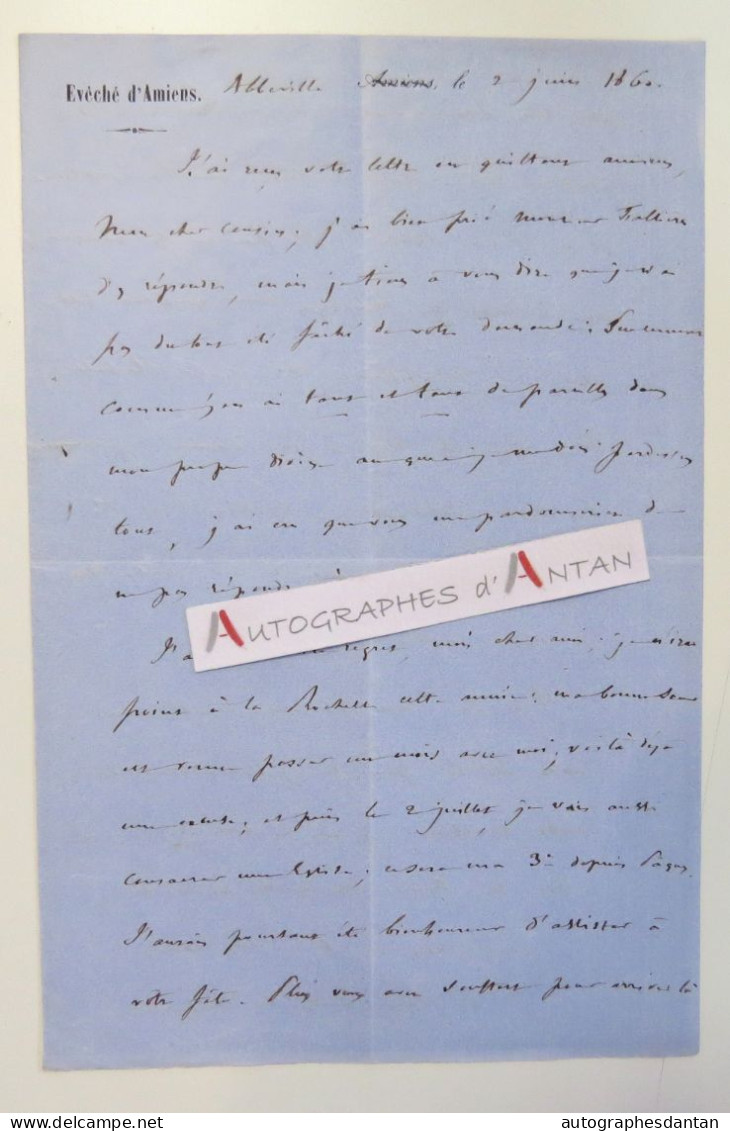 Evêché d'Amiens.
Abbeville Amiens, le 2 juin 1860.
J'ai reçu votre lettre en quittant amiens,
Mon cher cousin; j'ai bien prié monsieur
d'y répondre, mais je tiens à vous dire que je n'ai
pas du tout été fâché de votre demande. Seulement
comme j'en ai tant et tant de pareilles dans
mon propre diocèse auquel je me dois
tous, j'ai cru que vous me pardonneriez de
ne pas répondre
AUTOGRAPHES d'ANTAN
J'ai regret, mon cher ami; je n'irai
point à la Rochelle cette année; ma bonne Sœur
est venue passer un mois avec moi; voilà déjà
une excuse; et puis le 2 juillet, je vais aussi
consacrer une Eglise; ce sera ma 3e depuis Pâques.
J'aurais pourtant été bienheureux d'assister à
votre fête. Plus vous avez souffert pour arriver là
autographesdantan
autographesdantan